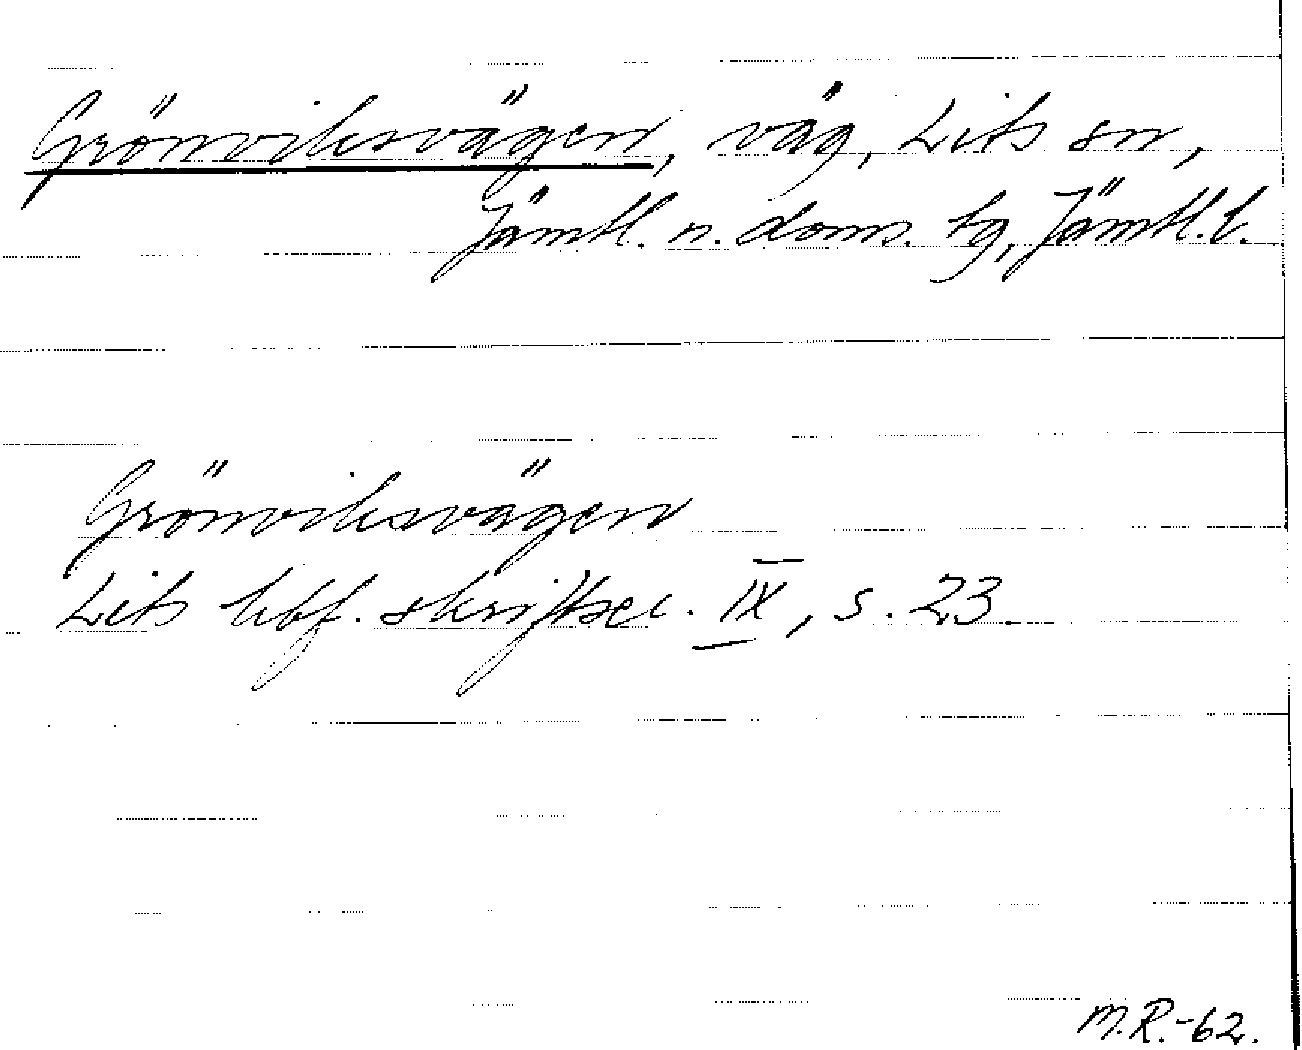 Grönviksvägen, väg, Lits sn,
Jämtl. n. doms. tg, Jämtl. l.
Grönviksvägen
Lits hbf. skriftser. IX, s. 23.
M.R.-62.